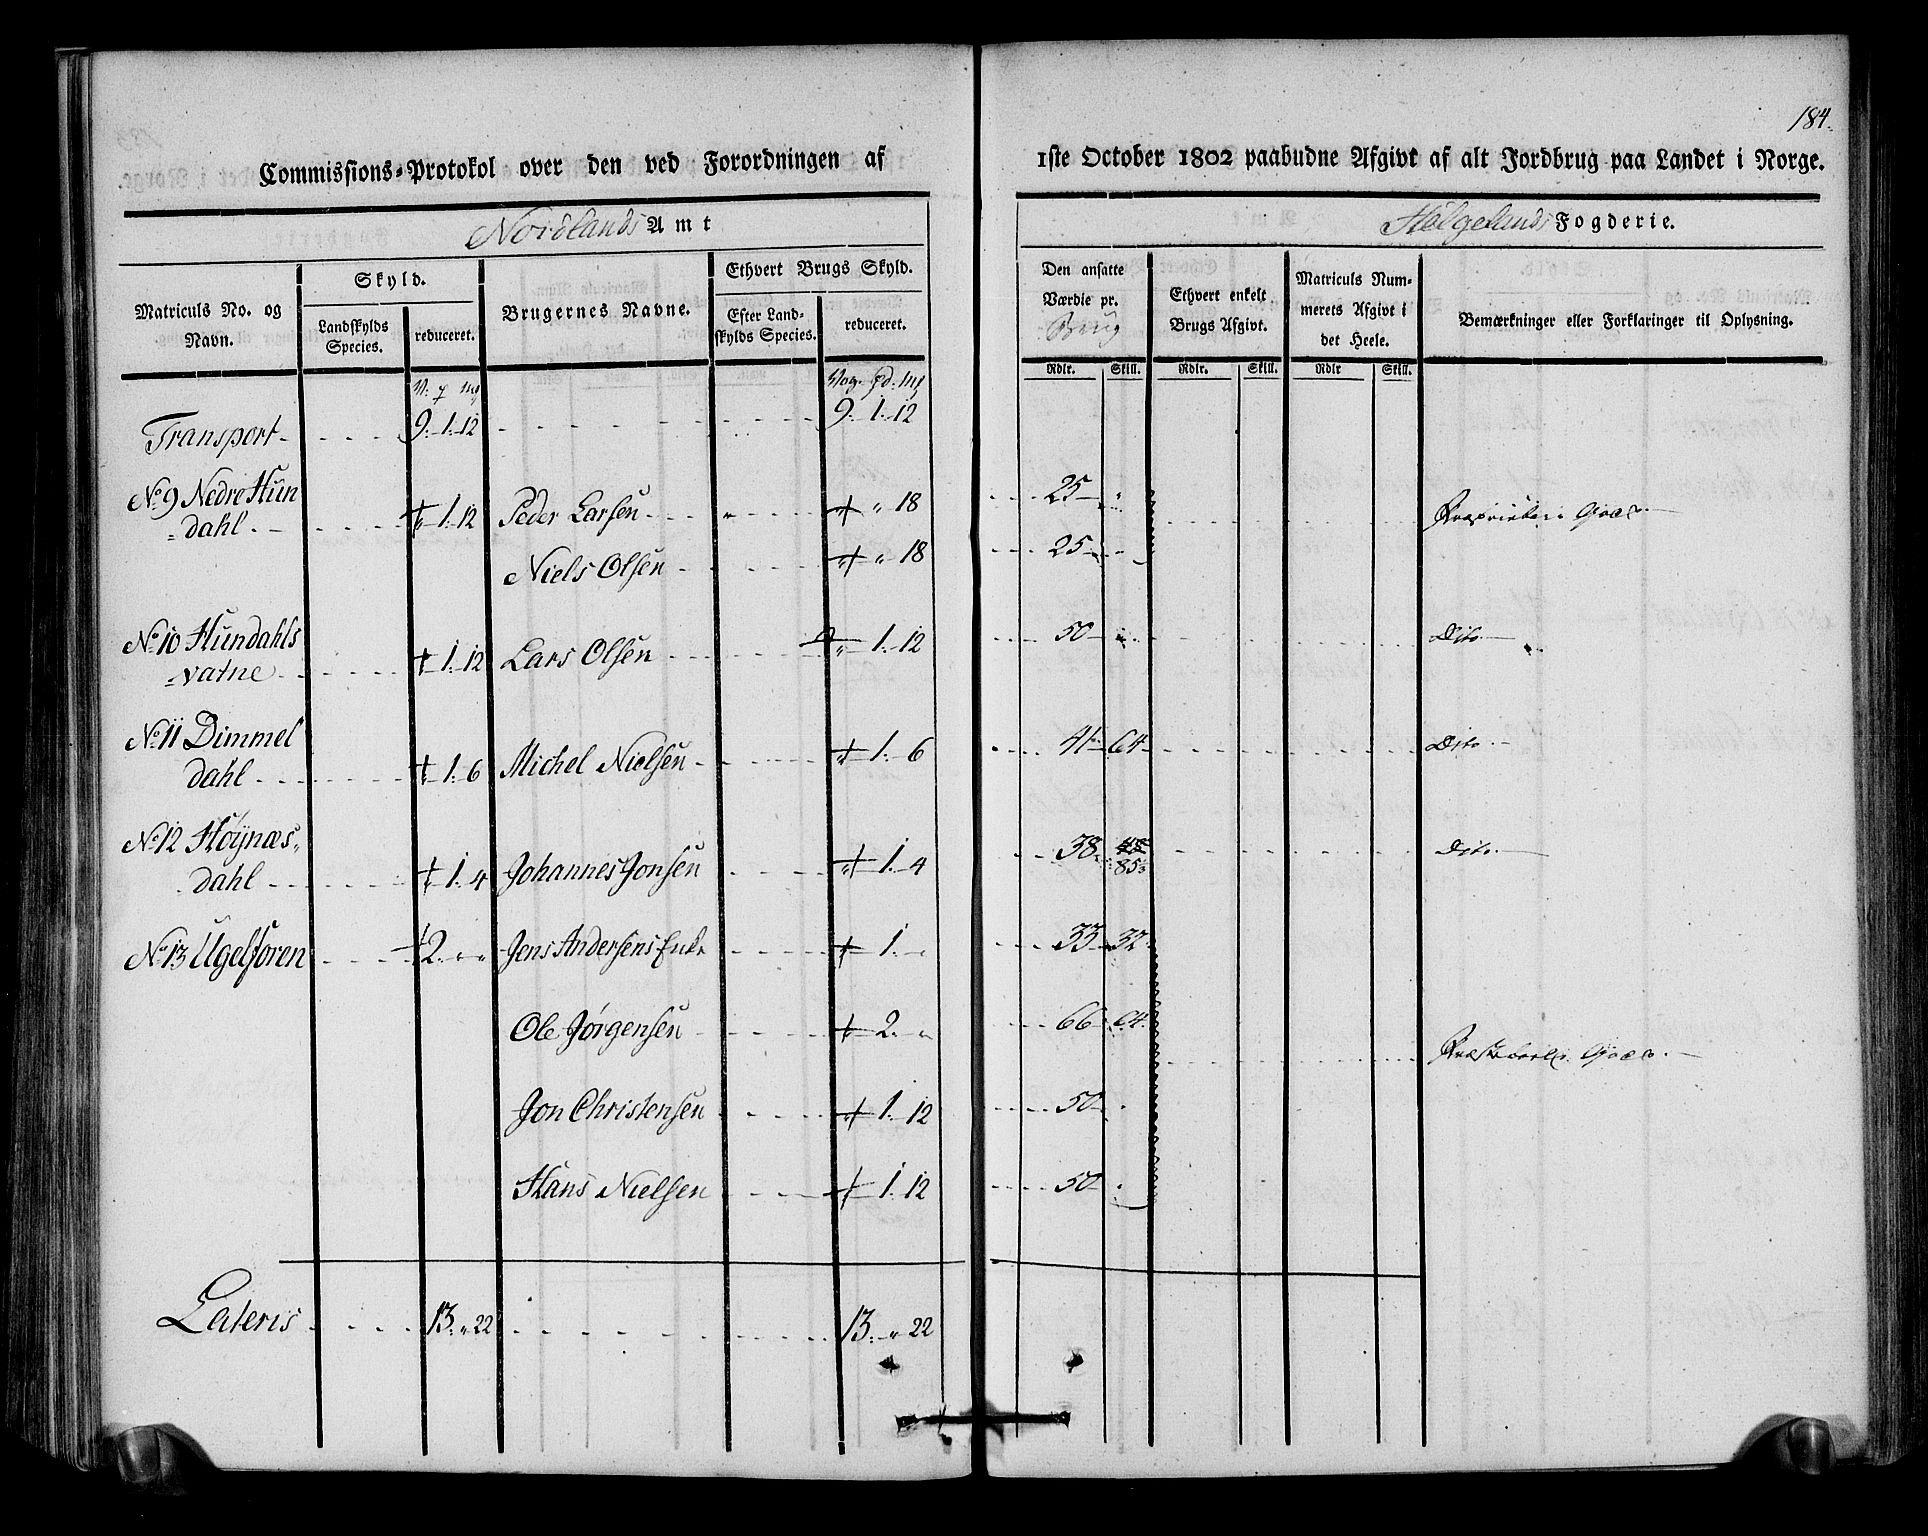 184.
Commissions-Protokol over den ved Forordningen af 1ste October 1802 paabudne Afgivt af alt Jordbrug paa Landet i Norge.
Nordlands Amt Helgelands Fogderie.
Matriculs No. og Navn.
Skyld.
Landskylds Species.
reduceret.
Brugernes Navne.
Ethvert Brugs Skyld.
Efter Landskylds Species.
reduceret.
Den ansatte Værdie pr. Brug
Ethvert enkelt Brugs Afgivt.
Matriculs Nummerets Afgivt i det Heele.
Bemærkninger eller Forklaringer til Oplysning.
Rdlr. Skill. Rdlr. Skill. Rdlr Skill.
Vog. Pd. mk
Transport 9. 1. 12 9. 1. 12
No 9 Nedre Hundahl 1. 12 Peder Larsen " 18 25 " Proprietair Goeds
Niels Olsen " 18 25
No 10 Hundahlsvatne 1. 12 Lars Olsen 1. 12 50 " Dito
No 11 Dimmeldahl 1. 6 Michel Nielsen 1. 6 41 64 Dito
No 12 Høÿnæsdahl 1. 4 Johannes Jonsen 1. 4 38 85 Dito
No 13 Ugelforen 2. " " Jens Andersens Enke 1. " 33 32
Ole Jørgensen 2. " 66 64 Præstebord Goeds
Jon Christensen 1. 12 50
Hans Nielsen 1. 12 50
Lateris 13. " 22 13. " 22